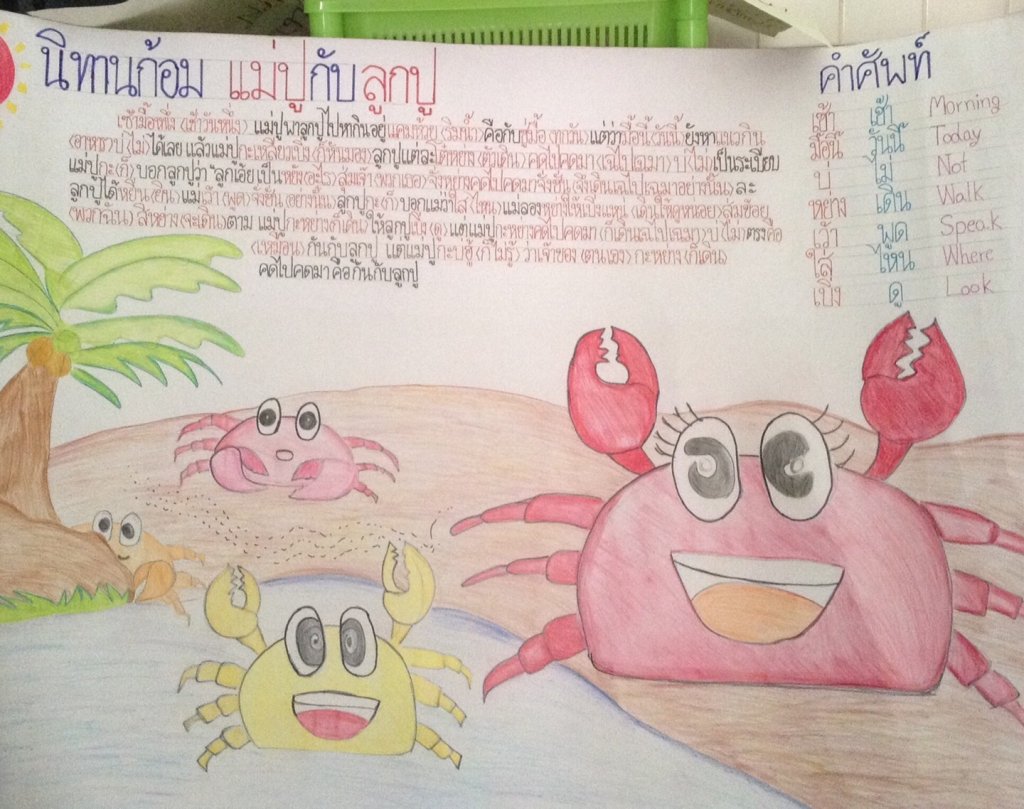 นิทานก้อม แม่ปูกับลูกปู
เซ้ามื้อหนึ่ง (เช้าวันหนึ่ง) แม่ปูพาลูกปูไปหากินอยู่แคมห้วย (ริมน้ำ) คือกับซุมื้อ (ทุกวัน) แต่ว่ามื้อนี้ (วันนี้) ยังหาแนวกิน
(อาหาร) บ่ (ไม่) ได้เลย แล้วแม่ปูกะเหลียวเบิ่ง (ก็หันมอง) ลูกปูแต่ละโต๋หย่าง (ตัวเดิน) คดไปคดมา (เฉไปเฉมา) บ่ (ไม่) เป็นระเบียบ
แม่ปูกะ (ก็) บอกลูกปูว่า "ลูกเอ้ยเป็นหยัง (อะไร) สุ่มเจ้า (พวกเธอ) จั่งหย่างคดไปคดมาจั่งซั่น (จึงเดินเฉไปเฉมาอย่างนั้น) ละ
ลูกปูได้หยิน (ยิน) แม่เว้า (พูด) จั่งซั่น (อย่างนั้น) ลูกปูกะ (ก็) บอกแม่ว่าใส (ไหน) แม่ลองหย่างให้เบิ่งแหน่ (เดินให้ดูหน่อย) สุ่มข้อย
(พวกฉัน) สิหย่าง (จะเดิน) ตาม แม่ปูกะหย่าง (ก็เดิน) ให้ลูกปูเบิ่ง (ดู) แต่แม่ปูกะหย่างคดไปคดมา (ก็เดินเฉไปเฉมา) บ่ (ไม่) ตรงคือ
(เหมือน) กันกับลูกปู แต่แม่ปูกะบ่ฮู้ (ก็ไม่รู้) ว่าเจ้าของ (ตนเอง) กะหย่าง (ก็เดิน)
คดไปคดมา คือกันกับลูกปู
คำศัพท์
เซ้า เช้า Morning
มื้อนี้ วันนี้ Today
บ่ ไม่ Not
หย่าง เดิน Walk
เว้า พูด Speak
ใส ไหน Where
เบิ่ง ดู Look